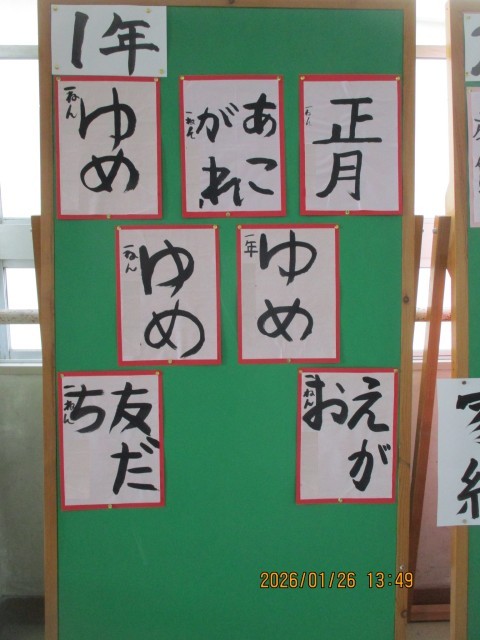 1年
ゆめ
一ねん
あこ
がれ
一ねん
正月
ゆめ
一ねん
ゆめ
一年
友だ
ち
一ねん
えが
お
一ねん
2026/01/26 13:49